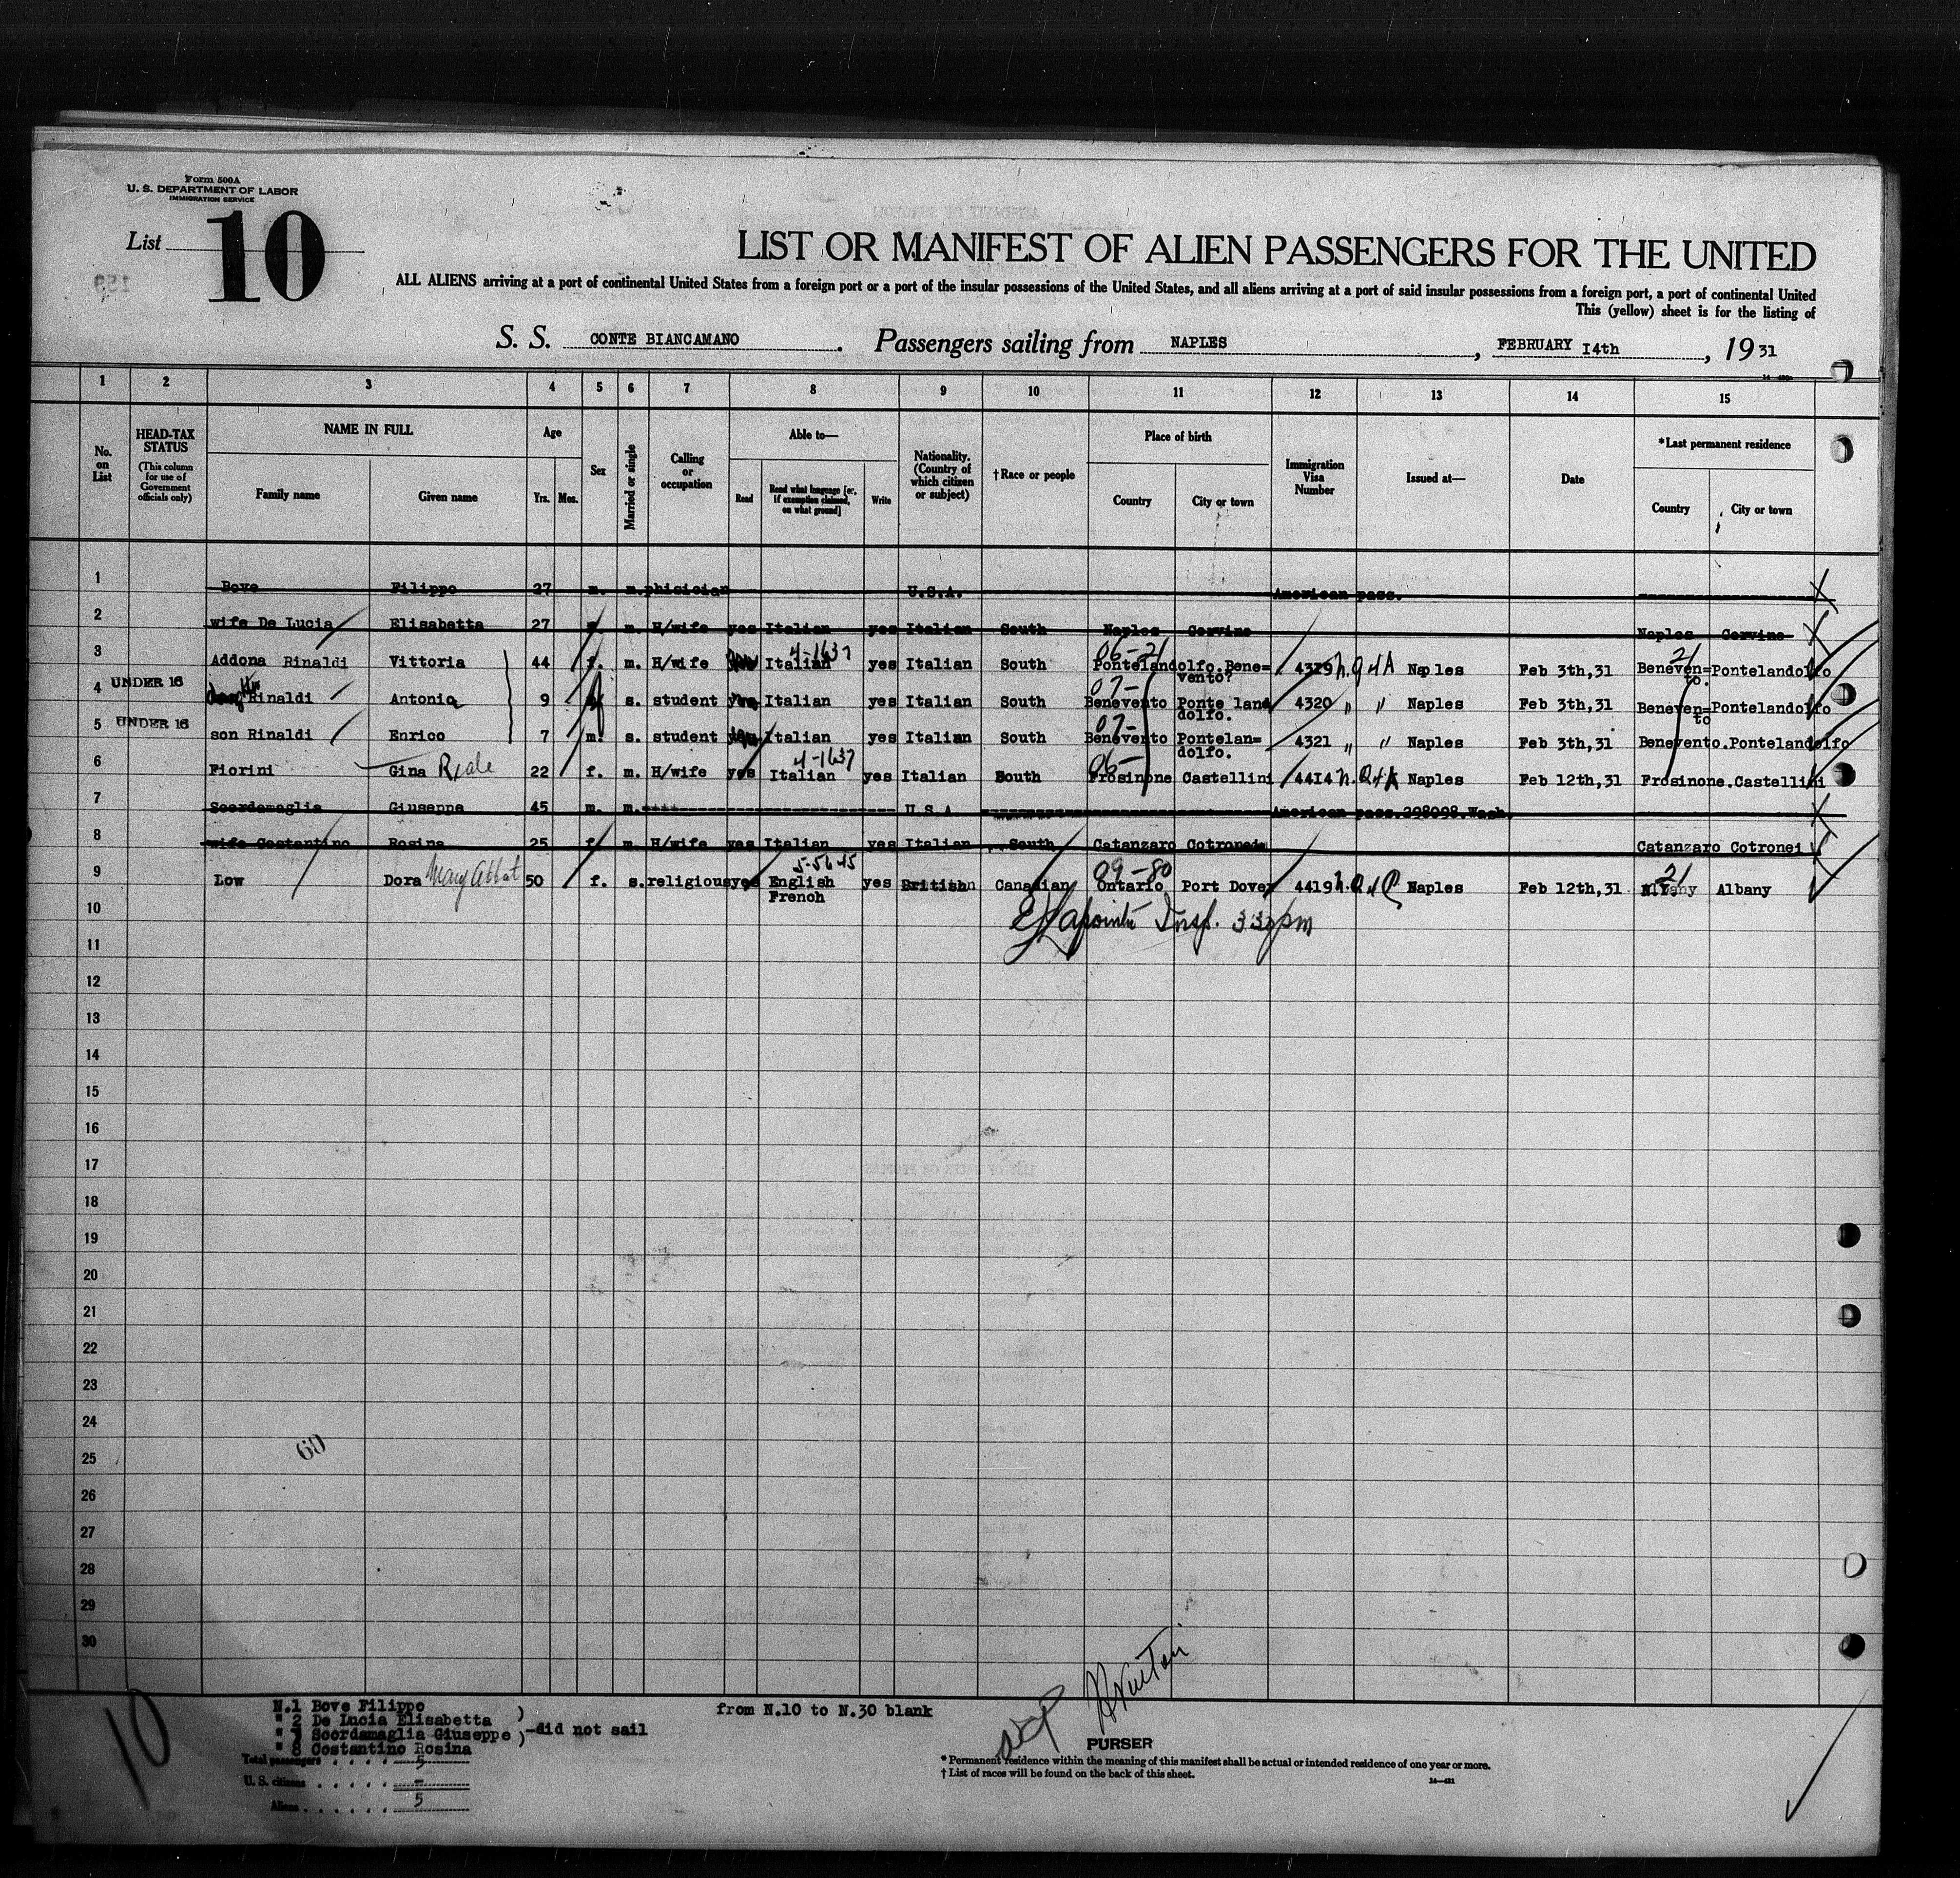 Form 500A
U. S. DEPARTMENT OF LABOR
IMMIGRATION SERVICE
List 10
LIST OR MANIFEST OF ALIEN PASSENGERS FOR THE UNITED
ALL ALIENS arriving at a port of continental United States from a foreign port or a port of the insular possessions of the United States, and all aliens arriving at a port of said insular possessions from a foreign port, a port of continental United
This (yellow) sheet is for the listing of
S. S. CONTE BIANCAMANO. Passengers sailing from NAPLES, FEBRUARY I4th, 19 31
1 2 3 4 5 6 7 8 9 10 11 12 13 14 15
No. on List
HEAD-TAX STATUS
(This column for use of Government officials only)
NAME IN FULL
Family name Given name
Age
Yrs. Mos.
Sex
Married or single
Calling or occupation
Able to—
Read
Read what language [or, if exemption claimed, on what ground]
Write
Nationality. (Country of which citizen or subject)
†Race or people
Place of birth
Country City or town
Immigration Visa Number
Issued at—
Date
*Last permanent residence
Country City or town
1 Bove Filippo 27 m. m. phisician U.S.A. American pass.
2 wife De Lucia Elisabetta 27 m. H/wife yes Italian yes Italian South Naples Cervino Naples Cervino
4-1637 06-21 21
3 Addona Rinaldi Vittoria 44 f. m. H/wife Italian yes Italian South Pontelandolfo.Bene=vento? 4319 Naples Feb 3th,31 Beneven=to. Pontelandolfo
UNDER 16 07-
4 Rinaldi Antonia 9 s. student yes Italian yes Italian South Benevento Ponte landdolfo. 4320 " " Naples Feb 3th,31 Beneven=to Pontelandolfo
UNDER 16 07-
5 son Rinaldi Enrico 7 m. s. student Italian yes Italian South Benevento Pontelan=dolfo. 4321 " " Naples Feb 3th,31 Benevento.Pontelandolfo
4-1637 06-
6 Fiorini Gina Reale 22 f. m. H/wife yes Italian yes Italian South Frosinone Castellini 44I4 Naples Feb I2th,31 Frosinone.Castellini
7 Scordamaglia Giuseppe 45 m. m. U.S.A. American pass.298098.Wash.
8 wife Costantino Rosina 25 f. m. H/wife yes Italian yes Italian South Catanzaro Cotronei Catanzaro Cotronei
5-5645 09-80 21
9 Low Dora Mary Abbot 50 f. s. religious yes English French yes British Canadian Ontario Port Dover 44I9 Naples Feb I2th,31 Albany
10 Insp. 330 pm
11
12
13
14
15
16
17
18
19
20
21
22
23
24
60
25
26
27
28
29
30
10
N.1 Bove Filippo
" 2 De Lucia Elisabetta
" 7 Scordamaglia Giuseppe
" 8 Costantino Rosina
-did not sail
from N.10 to N.30 blank
PURSER
Total passengers . . . . 5
U. S. citizens . . . . . -
Aliens . . . . . . 5
* Permanent residence within the meaning of this manifest shall be actual or intended residence of one year or more.
† List of races will be found on the back of this sheet.